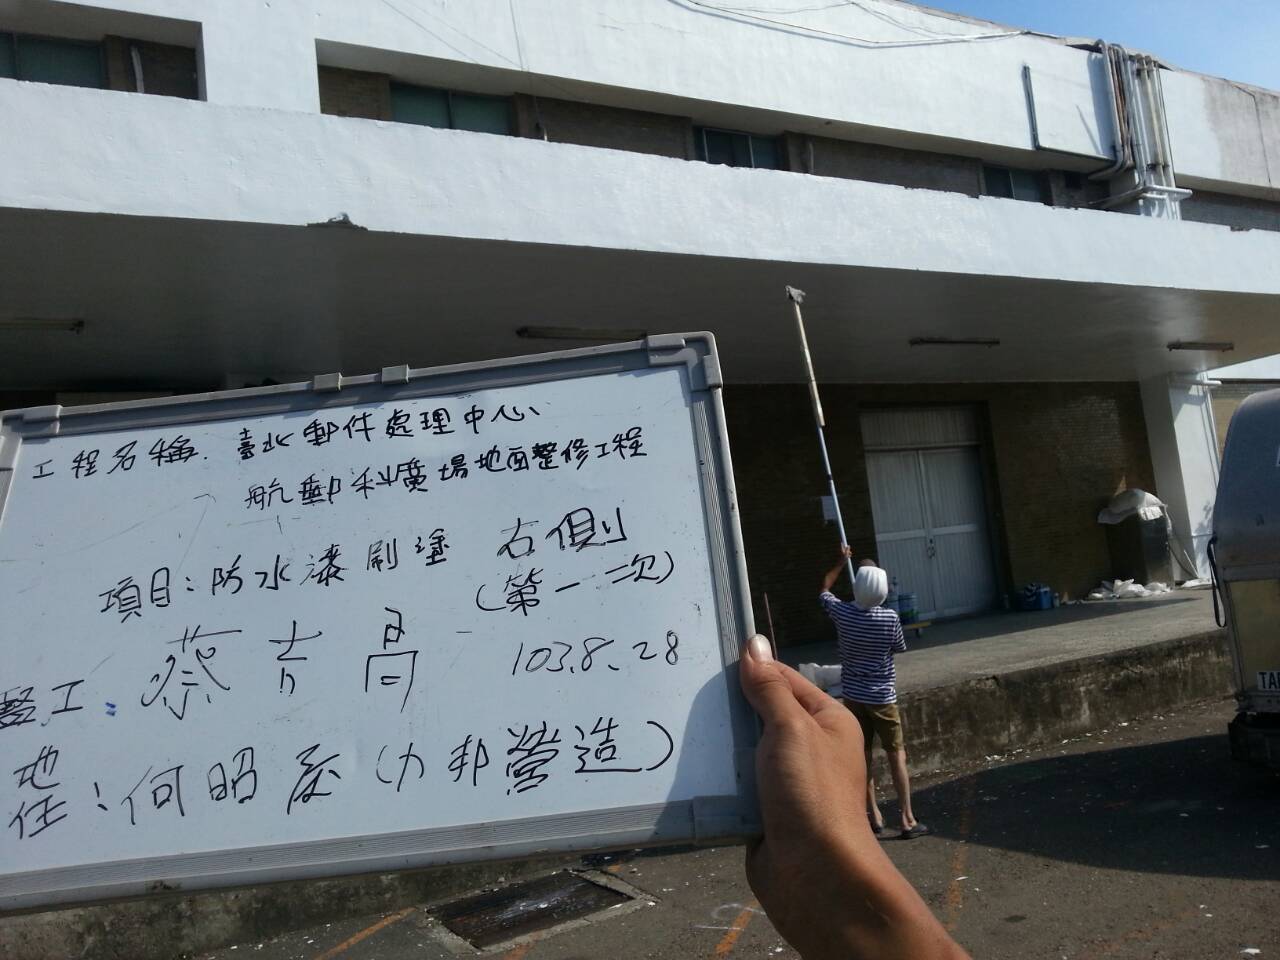 工程名稱. 臺北郵件處理中心、
航郵科廣場地面整修工程
項目:防水漆刷塗 右側
(第一二次)
監工:蔡
103.8.28
地
任:何昭慶(力邦營造)
TA